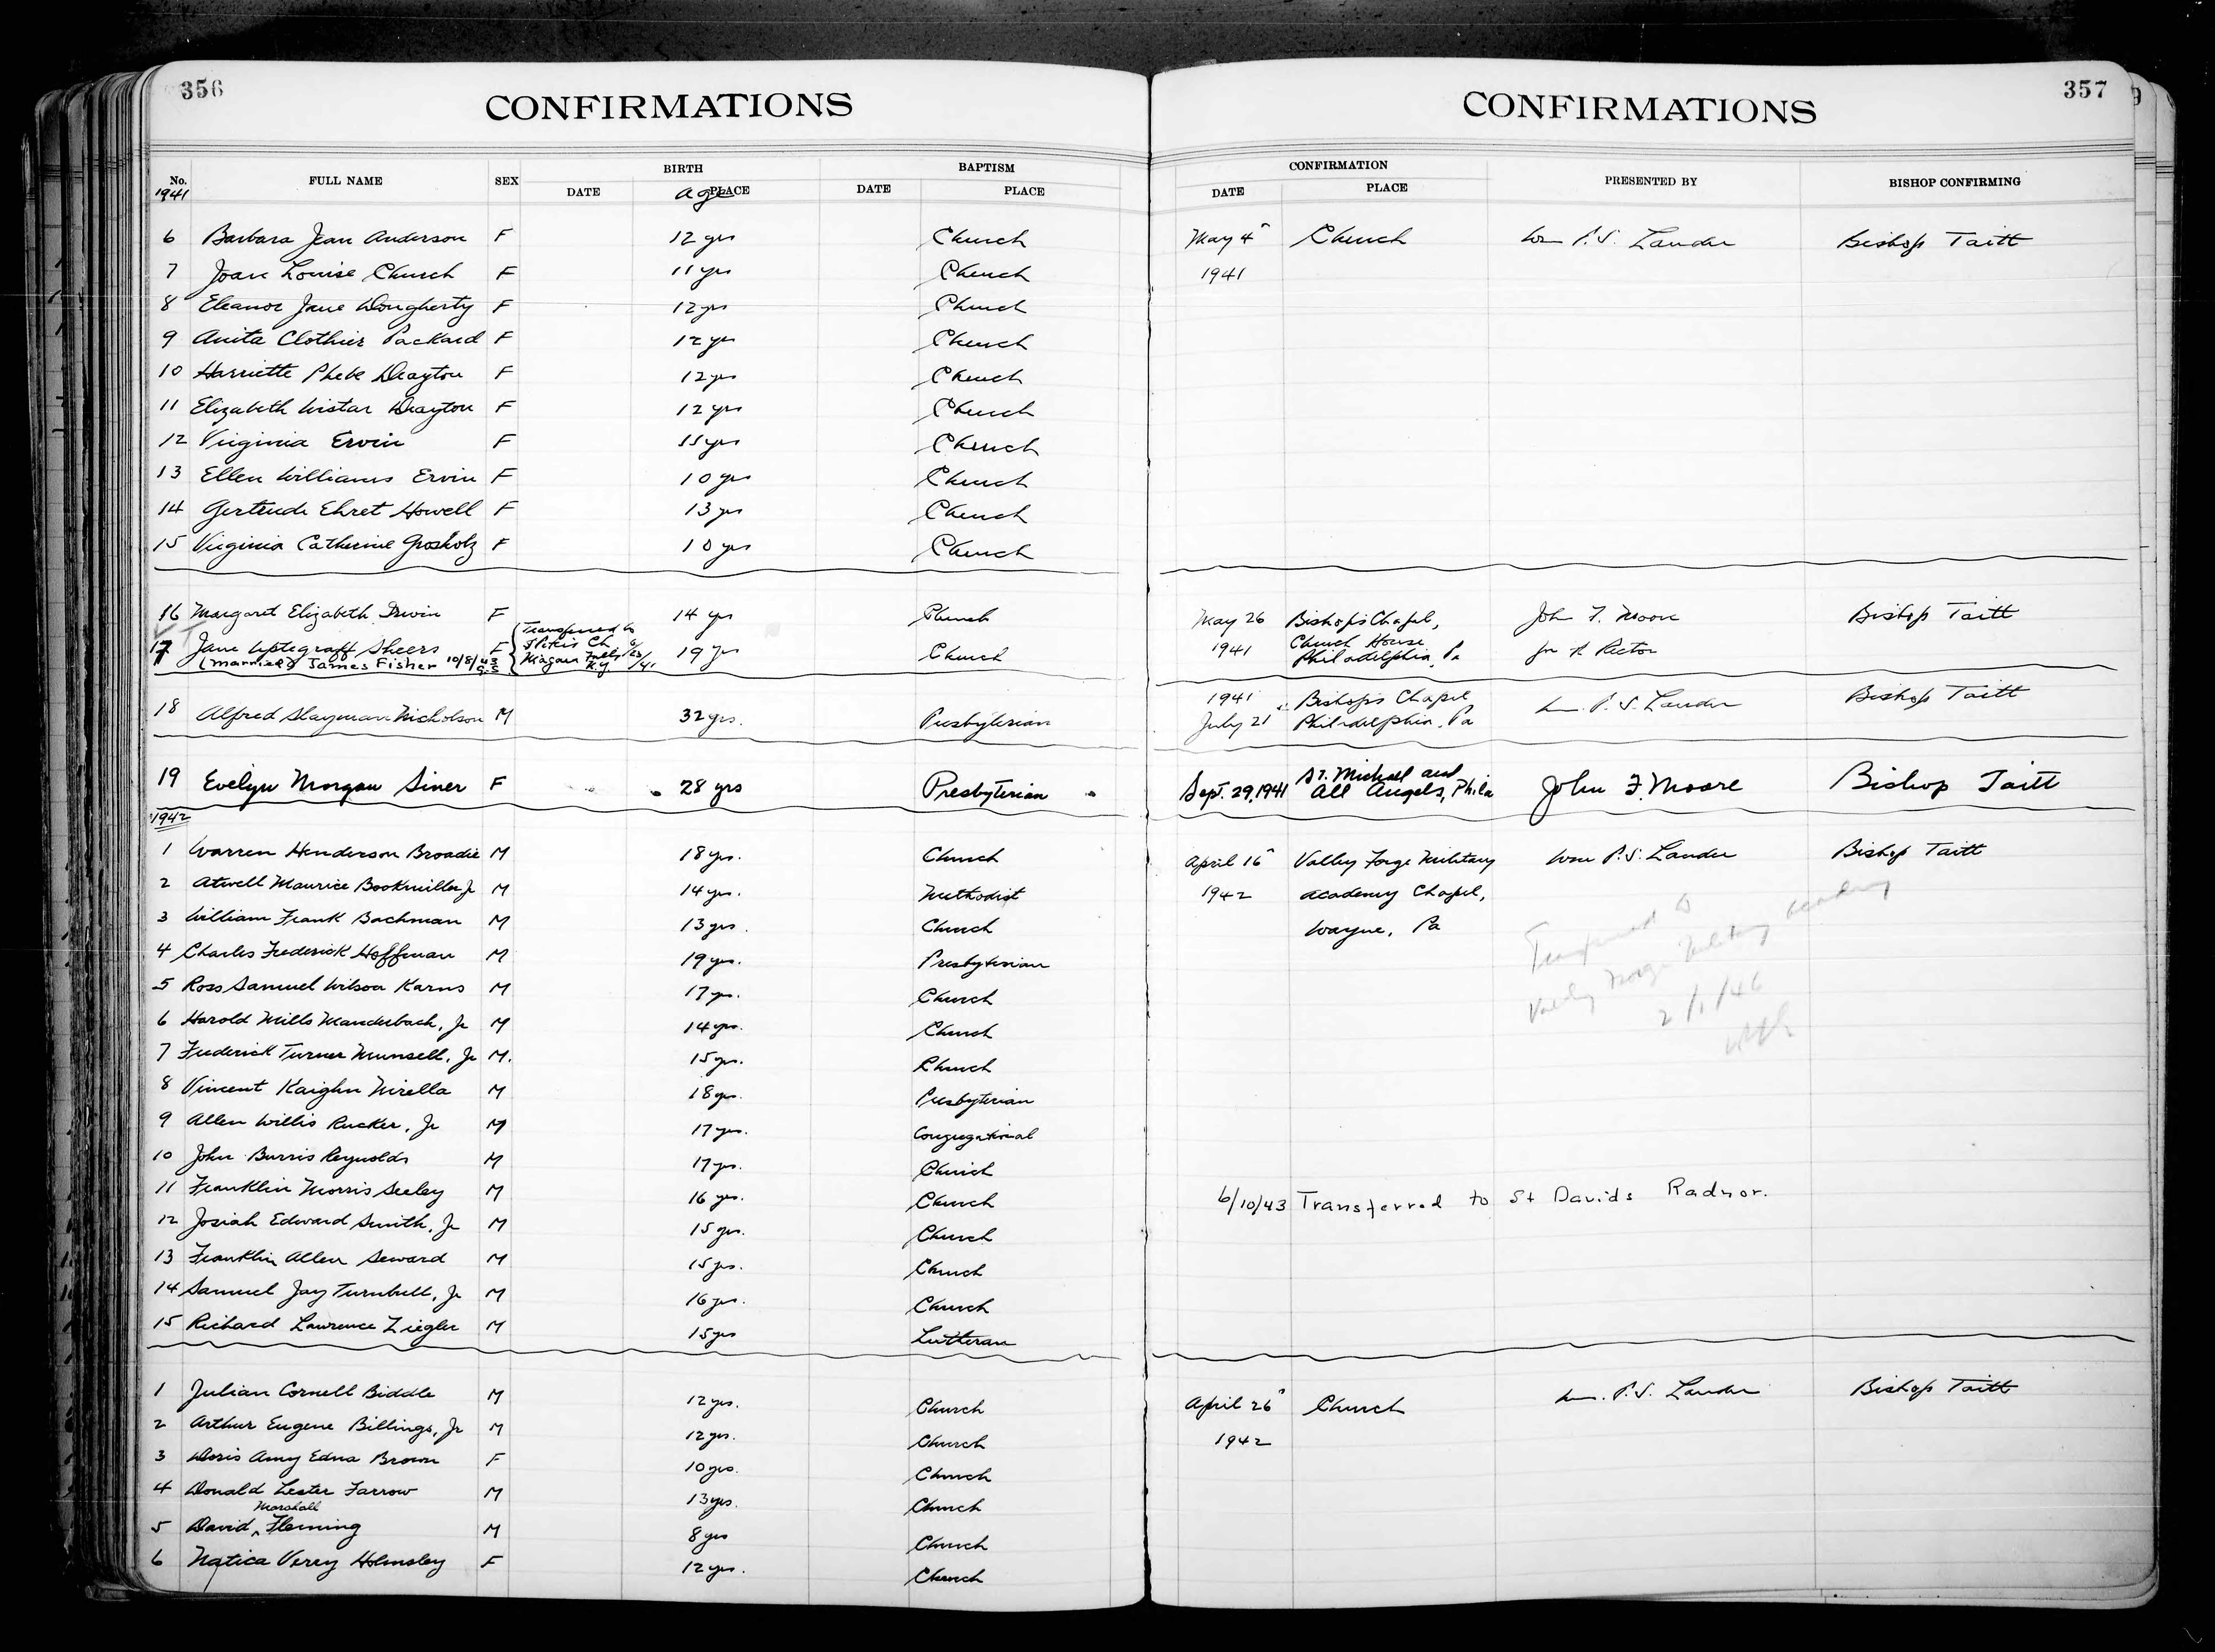 356
CONFIRMATIONS
No. FULL NAME SEX BIRTH BAPTISM
DATE PLACE DATE PLACE
1941 age
6 Barbara Jean Anderson F 12 yrs Church
7 Joan Louise Church F 11 yrs Church
8 Eleanor Jane Dougherty F 12 yrs Church
9 Anita Clothier Packard F 12 yrs Church
10 Harriette Phebe Drayton F 12 yrs Church
11 Elizabeth Wistar Drayton F 12 yrs Church
12 Virginia Ervin F 11 yrs Church
13 Ellen Williams Ervin F 10 yrs Church
14 Gertrude Ehret Howell F 13 yrs Church
15 Virginia Catherine Grosholz F 10 yrs Church
16 Margaret Elizabeth Irwin F 14 yrs Church
17 Jane Uptegraff Sheers F 19 yrs Church
Transferred to
St Peters Ch
Niagara Falls
N.Y.
(married James Fisher 10/8/43
18 Alfred Slayman Nicholson M 32 yrs. Presbyterian
19 Evelyn Morgan Siner F 28 yrs Presbyterian
1942
1 Warren Henderson Broadie M 18 yrs. Church
2 Atwell Maurice Bookmiller Jr M 14 yrs. Methodist
3 William Frank Bachman M 13 yrs. Church
4 Charles Frederick Hoffman M 19 yrs. Presbyterian
5 Ross Samuel Wilson Karns M 17 yrs. Church
6 Harold Mills Manderbach, Jr M 14 yrs. Church
7 Frederick Turner Munsell, Jr M. 15 yrs. Church
8 Vincent Kaighn Nirella M 18 yrs. Presbyterian
9 Allen Willis Rucker, Jr M 17 yrs. Congregational
10 John Burris Reynolds M 17 yrs. Church
11 Franklin Morris Seeley M 16 yrs. Church
12 Josiah Edward Smith, Jr M 15 yrs. Church
13 Franklin Allen Seward M 15 yrs. Church
14 Samuel Jay Turnbull, Jr M 16 yrs. Church
15 Richard Lawrence Ziegler M 15 yrs Lutheran
1 Julian Cornell Biddle M 12 yrs. Church
2 Arthur Eugene Billings, Jr M 12 yrs. Church
3 Doris Amy Edna Brown F 10 yrs. Church
4 Donald Lester Farrow M 13 yrs. Church
Marshall
5 David ^ Fleming M 8 yrs Church
6 Natica Verey Holmsley F 12 yrs. Church
357
CONFIRMATIONS
CONFIRMATION PRESENTED BY BISHOP CONFIRMING
DATE PLACE
May 4 Church Wm P. S. Lander Bishop Taitt
1941
May 26 Bishop's Chapel, John F. Moore Bishop Taitt
1941 Church House for A Rector
Philadelphia, Pa
1941 Bishop's Chapel Wm. P. S. Lander Bishop Taitt
July 21 Philadelphia, Pa
Sept. 29, 1941 St. Michael and John F. Moore Bishop Taitt
All Angels, Phila
April 16 Valley Forge Military Wm P. S. Lander Bishop Taitt
1942 Academy Chapel,
Wayne, Pa
Transferred to
Valley Forge Military Academy
2/1/46
6/10/43 Transferred to St Davids Radnor.
April 26 Church Wm. P. S. Lander Bishop Taitt
1942